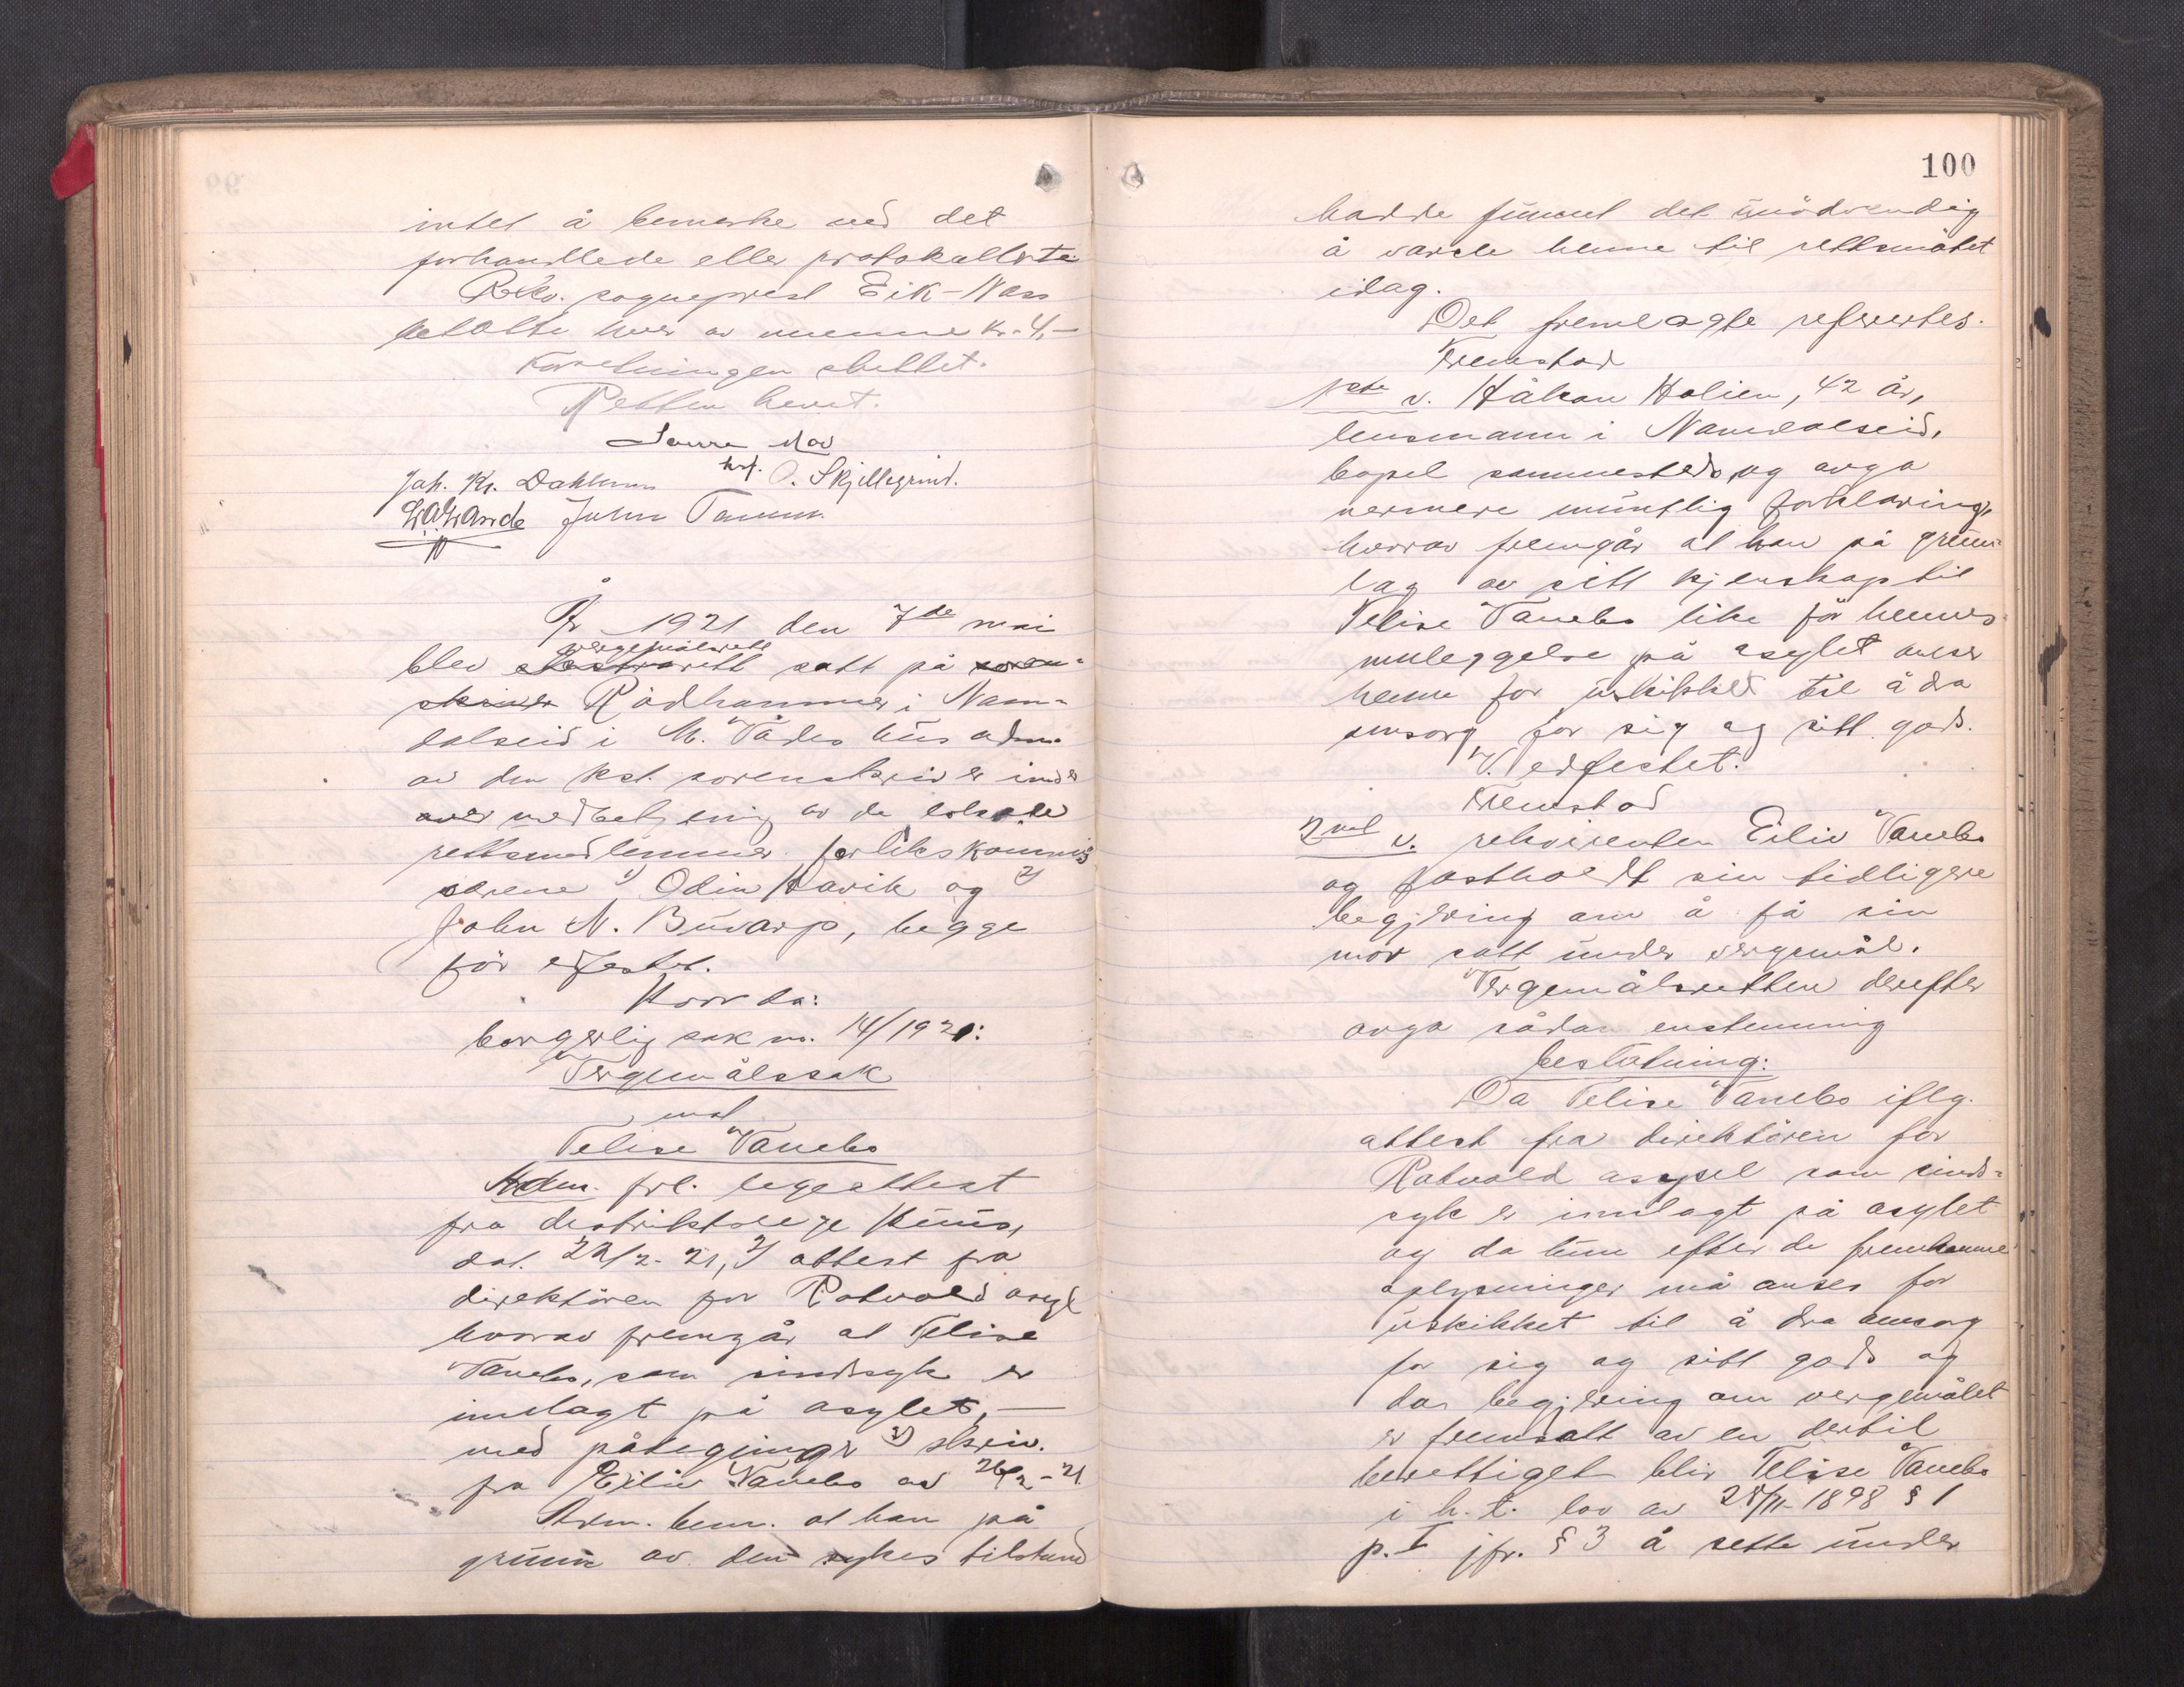 intet å bemerke ved det
forhandlede eller protokollerte
Rekv. sogneprest Eik-Næss
betalte hver av mennene kr. 4,-
Forretningen sluttet.
Retten hevet.
hrf. O. Skjellegrind.
Joh. Kr. Dahl
John
År 1921 den 7de mai
vergemålsrett
blev ekstrarett satt på soren-
skriver Rödhammer i Nam-
dalseid i M. Tådes hus adm.
av den kst. sorenskriver i
med betjening av de
rettsmedlemmer forlikskommis
særene 1) Odin Havik og 2)
John N. Buvarp, begge
för edfestet.
Hvor da:
borgerlig sak nr. 14/1921:
Vergemålssak
mot
Telise Vanebo
Adm. frl. legeattest
fra distriktslege Huus,
dat. 22/2-21, 2) attest fra
direktören for Rotvold asyl
hvorav fremgår at Telise
Vanebo, som sindssyk er
innlagt på asylet, —
med påtegninger 3) skriv.
fra Eiliv Vanebo av 26/2-21
Adm. bem. at han på
grunn av den sykes tilstand
100
hadde funnet det unödvendig
å varsle henne til rettsmötet
idag.
Det fremlagte refertes.
Fremstod
1ste v. Håkon Holien, 42 år,
lensmann i Namdalseid,
bopel sammesteds, og avga
nermere muntlig forklaring,
hvorav fremgår at han på grunn-
lag av sitt kjenskap til
Telise Vanebo like för hennes
innleggelse på asylet anser
henne for uskikket til å dra
omsorg for sig og sitt gods.
V. edfestet.
Fremstod
2net v. rekvirenten Eiliv Vanebo
og fastholdt sin tidligere
begjæring om å få sin
mor satt under vergemål.
Vergemålsretten derefter
avga sådan enstemmig
beslutning:
Da Telise Vanebo iflg.
attest fra direktören for
Rotvold asyl som sinds-
syk er innlagt på asylet
og da hun efter de fremkomne
oplysninger må anses for
uskikket til å dra omsorg
for sig og sitt gods og
da begjæring om vergemålet
er fremsatt av en dertil
berettiget blir Telise Vanebo
i h. t. lov av 28/11-1898 § 1
p. I jfr. § 3 å sette under